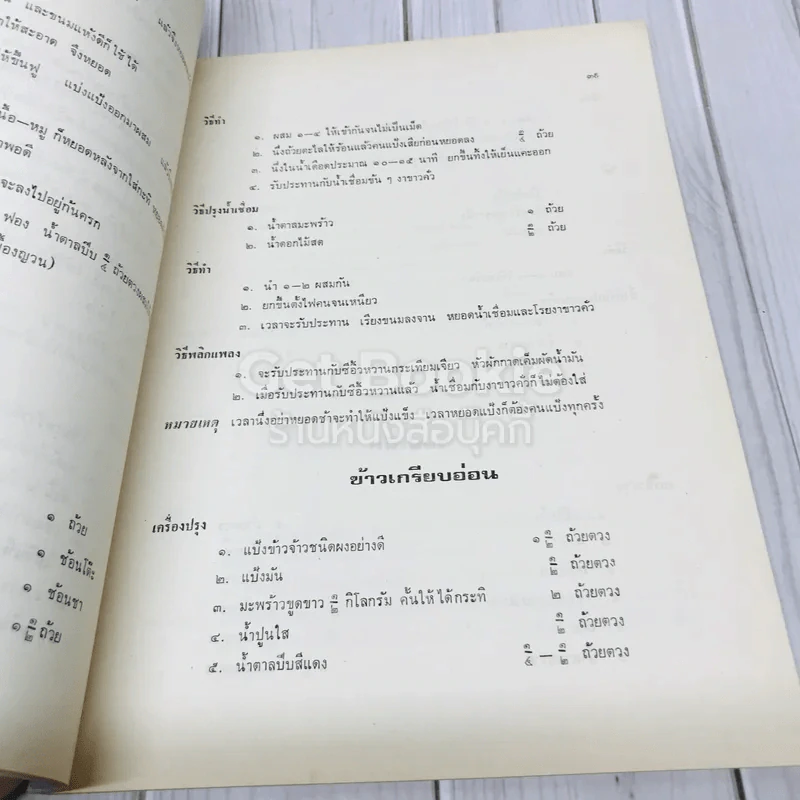 และขนมแห้งดีก็ใช้ได้
ให้สะอาด จึงหยอด
ให้ขึ้นฟู แบ่งแป้งออกมาผสม
เนื้อ—หมู ก็หยอดหลังจากใส่กะทิ
าพอดี
จะลงไปอยู่ก้นครก
ฟอง น้ำตาลปีบ ๑/๔ ถ้วยตวง
ื้องญวน)
๑ ถ้วย
๑ ช้อนโต๊ะ
๑ ช้อนชา
๑ ๑/๒ ถ้วย
๓๙
วิธีทำ
๑. ผสม ๑—๔ ให้เข้ากันจนไม่เป็นเม็ด
๒. นึ่งถ้วยตะไลให้ร้อนแล้วคนแป้งเสียก่อนหยอดลง ๑/๔ ถ้วย
๓. นึ่งในน้ำเดือดประมาณ ๑๐—๑๕ นาที ยกขึ้นทิ้งให้เย็นแคะออก
๔. รับประทานกับน้ำเชื่อมข้น ๆ งาขาวคั่ว
วิธีปรุงน้ำเชื่อม
๑. น้ำตาลมะพร้าว ๑ ถ้วย
๒. น้ำดอกไม้สด ๑/๒ ถ้วย
วิธีทำ
๑. นำ ๑—๒ ผสมกัน
๒. ยกขึ้นตั้งไฟคนจนเหนียว
๓. เวลาจะรับประทาน เรียงขนมลงจาน หยอดน้ำเชื่อมและโรยงาขาวคั่ว
วิธีพลิกแพลง
๑. จะรับประทานกับซีอิ้วหวานกระเทียมเจียว หัวผักกาดเค็มผัดน้ำมัน
๒. เมื่อรับประทานกับซีอิ้วหวานแล้ว น้ำเชื่อมกับงาขาวคั่วก็ไม่ต้องใส่
หมายเหตุ เวลานึ่งอย่าหยอดช้าจะทำให้แป้งแข็ง เวลาหยอดแป้งก็ต้องคนแป้งทุกครั้ง
ร้านหนังสือบุคกี้
ข้าวเกรียบอ่อน
เครื่องปรุง
๑. แป้งข้าวจ้าวชนิดผงอย่างดี ๑ ๑/๒ ถ้วยตวง
๒. แป้งมัน ๑/๒ ถ้วยตวง
๓. มะพร้าวขูดขาว ๑/๒ กิโลกรัม คั้นให้ได้กะทิ ๒ ถ้วยตวง
๔. น้ำปูนใส ๑/๒ ถ้วยตวง
๕. น้ำตาลปีบสีแดง ๑/๔ — ๑/๒ ถ้วยตวง